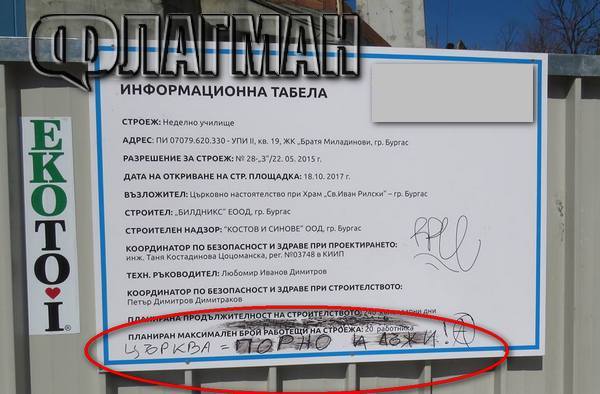 ФЛАГМАН
ИНФОРМАЦИОННА ТАБЕЛА
СТРОЕЖ: Неделно училище
АДРЕС: ПИ 07079.620.330 - УПИ II, кв. 19, ЖК „Братя Миладинови, гр. Бургас
РАЗРЕШЕНИЕ ЗА СТРОЕЖ: № 28-„З"/22. 05. 2015 г.
ДАТА НА ОТКРИВАНЕ НА СТР. ПЛОЩАДКА: 18.10. 2017 г.
ВЪЗЛОЖИТЕЛ: Църковно настоятелство при Храм „Св.Иван Рилски" – гр. Бургас
СТРОИТЕЛ: „БИЛДНИКС" ЕООД, гр. Бургас
СТРОИТЕЛЕН НАДЗОР: "КОСТОВ И СИНОВЕ" ООД, гр. Бургас
КООРДИНАТОР ПО БЕЗОПАСНОСТ И ЗДРАВЕ ПРИ ПРОЕКТИРАНЕТО:
инж. Таня Костадинова Цоцоманска, рег. №03748 в КИИП
ТЕХН. РЪКОВОДИТЕЛ: Любомир Иванов Димитров
КООРДИНАТОР ПО БЕЗОПАСНОСТ И ЗДРАВЕ ПРИ СТРОИТЕЛСТВОТО:
Петър Димитров Димитраков
ПЛАНИРАНА ПРОДЪЛЖИТЕЛНОСТ НА СТРОИТЕЛСТВОТО: 240 календарни дни
ПЛАНИРАН МАКСИМАЛЕН БРОЙ РАБОТЕЩИ НА СТРОЕЖА: 20 работника
ЦЪРКВА = ПОРНО И ЛЪЖИ!
EKOTO I